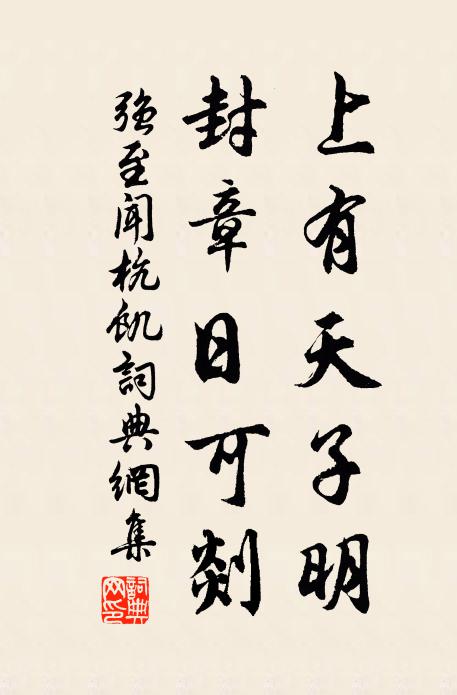 上有天子明
封章日可剡
强至闻杭飢詞典網集
詞典网印